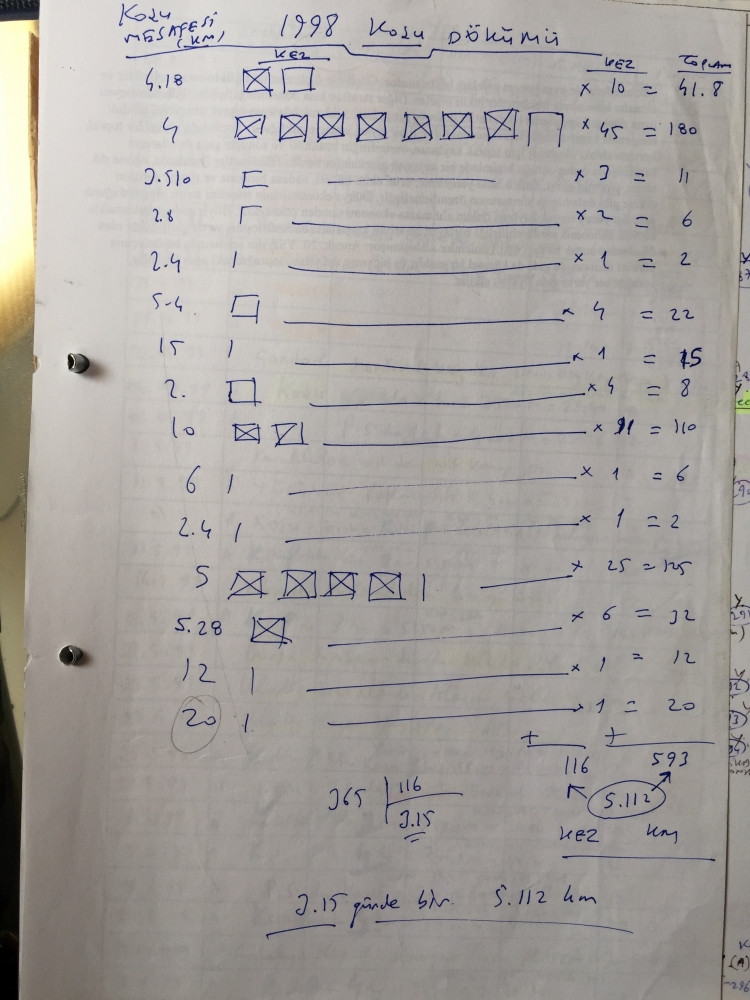 KOŞU MESAFESİ (.KM) 1998 KOŞU DÖKÜMÜ
KEZ KEZ TOPLAM
4.18 × 10 = 41.8
4 × 45 = 180
3.510 × 3 = 11
2.8 × 2 = 6
2.4 × 1 = 2
5.4 × 4 = 22
15 × 1 = 15
2. × 4 = 8
10 × 11 = 110
6 × 1 = 6
2.4 × 1 = 2
5 × 25 = 125
5.28 × 6 = 32
12 × 1 = 12
20 × 1 = 20
+ +
116 593
365 116 5.112
3.15
KEZ KM
3.15 günde bir. 5.112 km